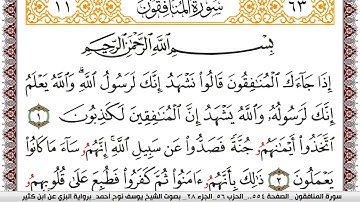 ١١ سُورَةُ المُنَافِقُونَ ٦٣
بِسْمِ اللَّهِ الرَّحْمَٰنِ الرَّحِيمِ
إِذَا جَآءَكَ ٱلْمُنَٰفِقُونَ قَالُوا۟ نَشْهَدُ إِنَّكَ لَرَسُولُ ٱللَّهِۗ وَٱللَّهُ يَعْلَمُ
إِنَّكَ لَرَسُولُهُۥ وَٱللَّهُ يَشْهَدُ إِنَّ ٱلْمُنَٰفِقِينَ لَكَٰذِبُونَ ١
ٱتَّخَذُوٓا۟ أَيْمَٰنَهُمُۥ جُنَّةً فَصَدُّوا۟ عَن سَبِيلِ ٱللَّهِۚ إِنَّهُمُۥ سَآءَ مَا كَانُوا۟
يَعْمَلُونَ ٢ ذَٰلِكَ بِأَنَّهُمُۥ ءَامَنُوا۟ ثُمَّ كَفَرُوا۟ فَطُبِعَ عَلَىٰ قُلُوبِهِمُۥ
سورة المنافقون ..الصفحة ٥٥٤ .. الحزب ٥٦ ..الجزء ٢٨ .. بصوت الشيخ يوسف نوح أحمد ..برواية البزي عن ابن كثير